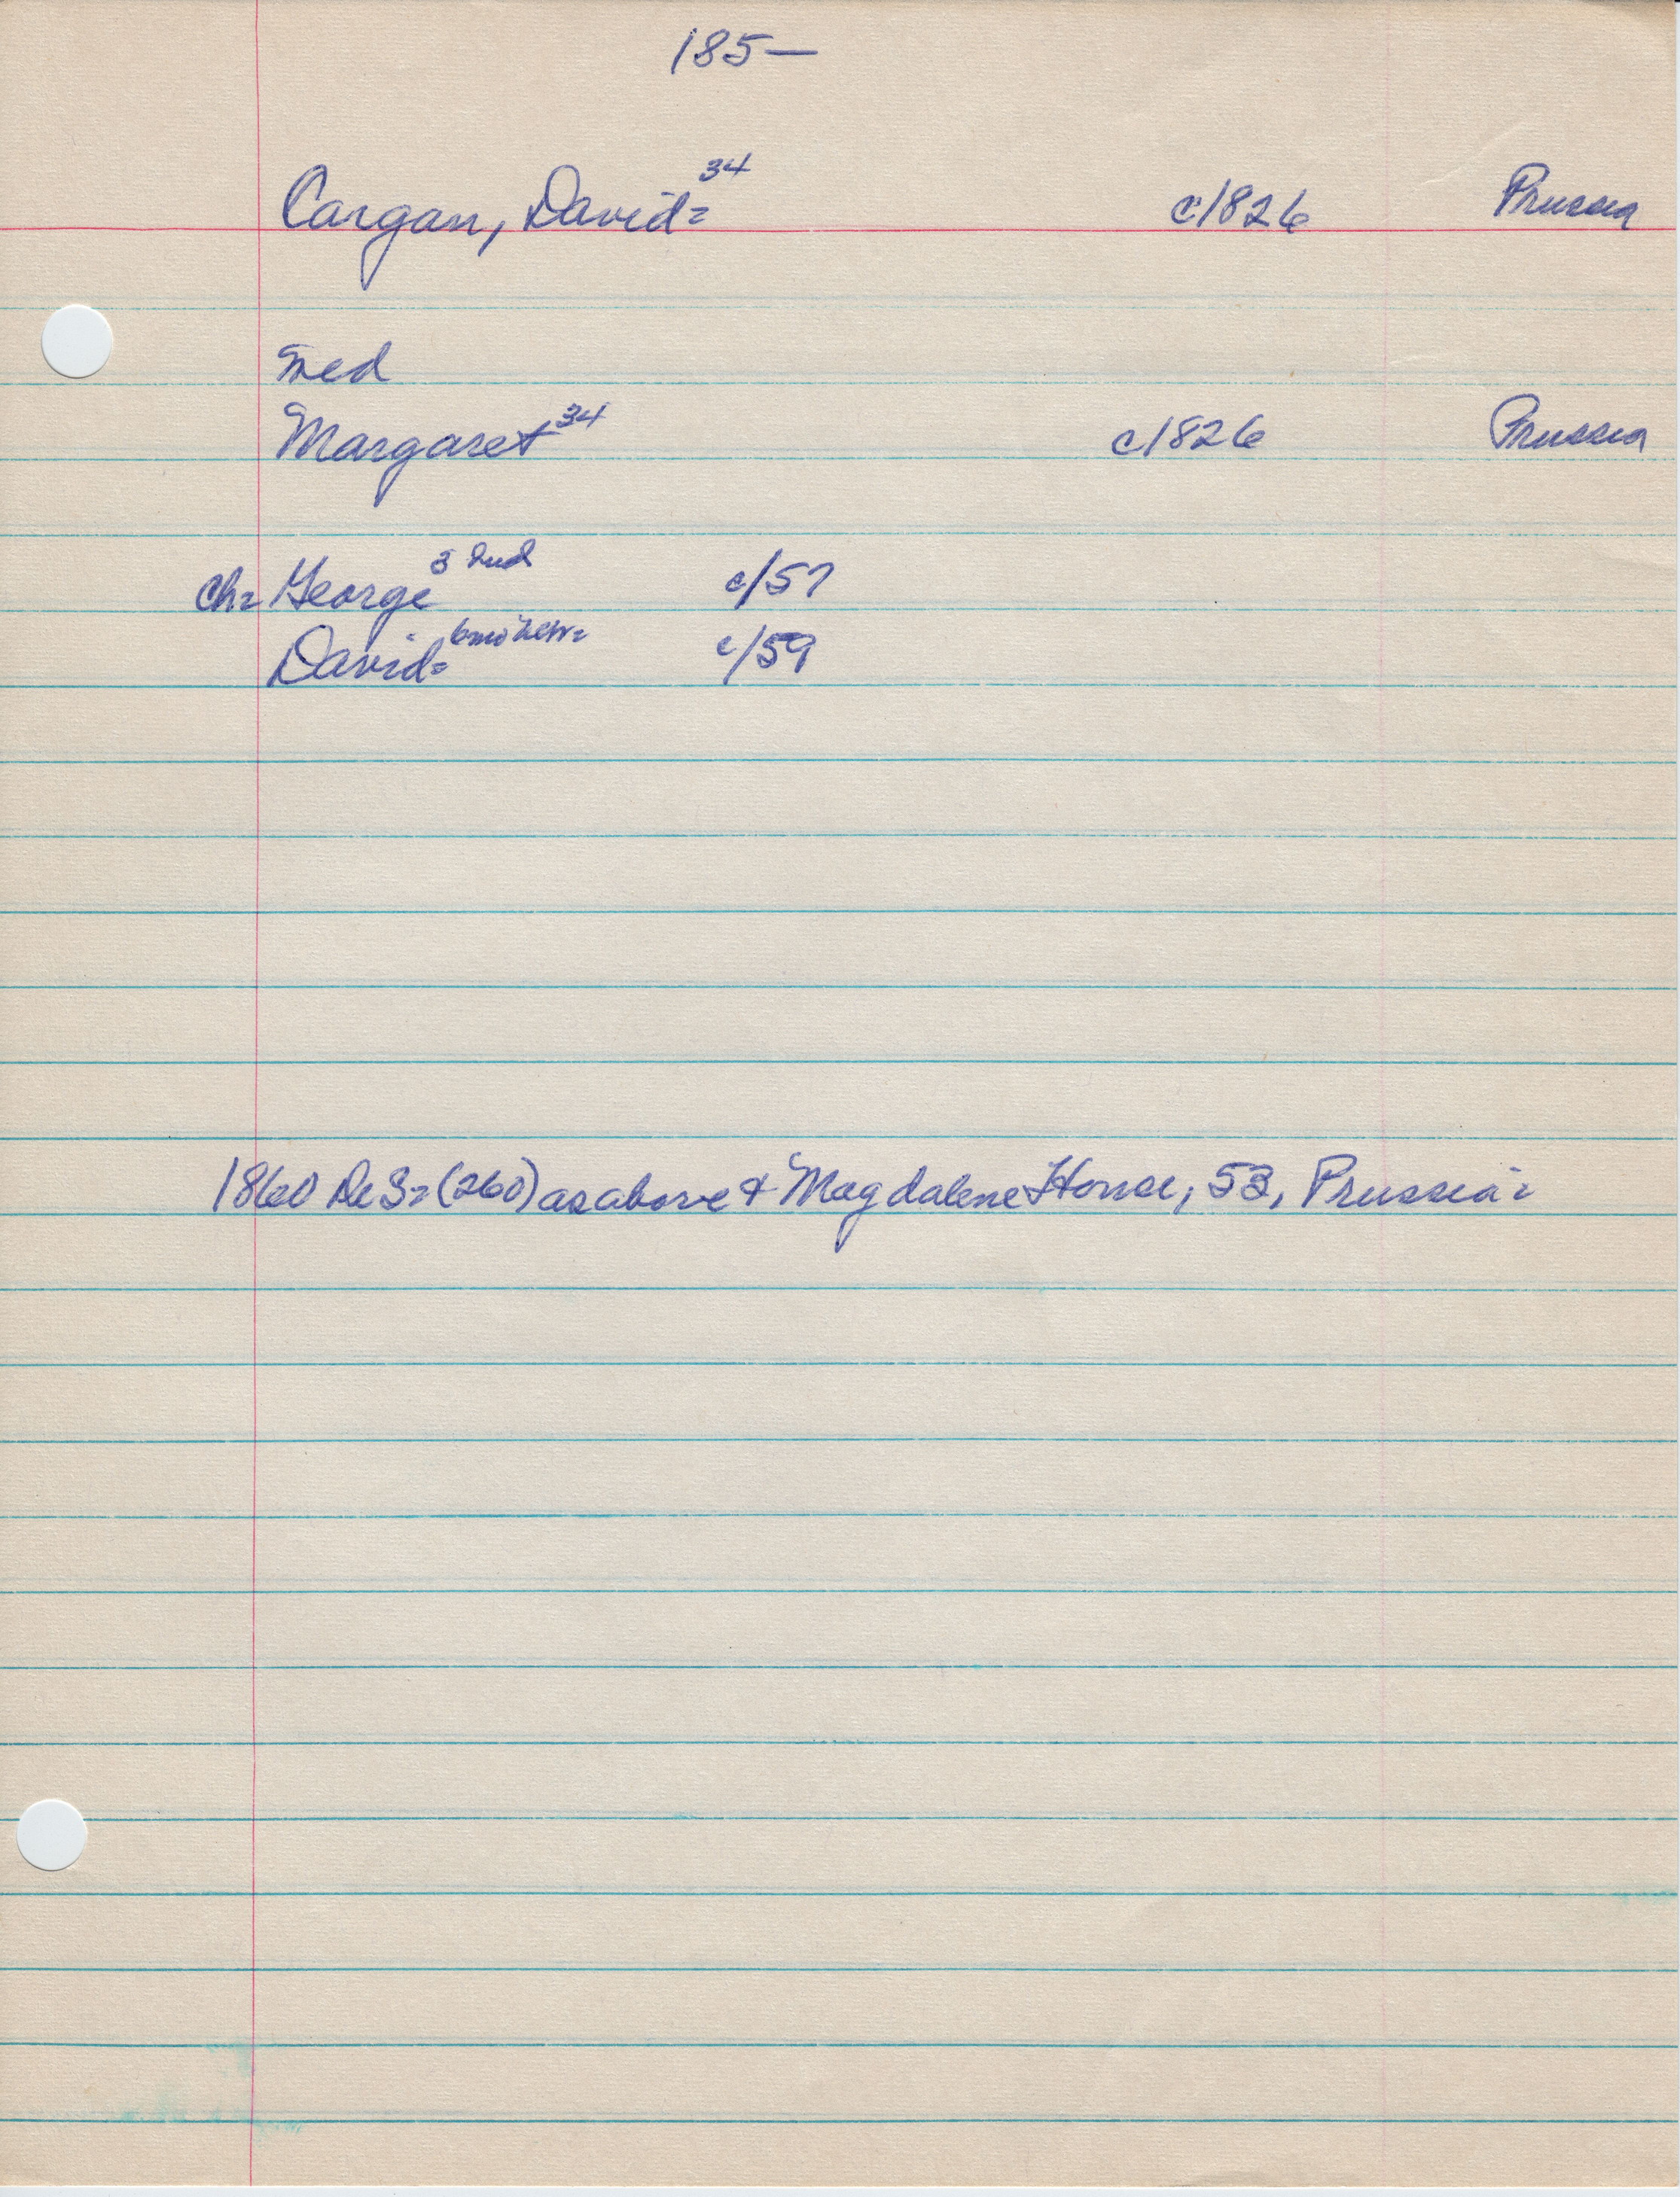 185—
Cargan, David= 34 c1826 Prussia
med
Margaret 34 c1826 Prussia
Ch= George 3 Ind c/57
David= 6mo c/59
1860 DeS= (260) as above & Magdalene House, 53, Prussia=